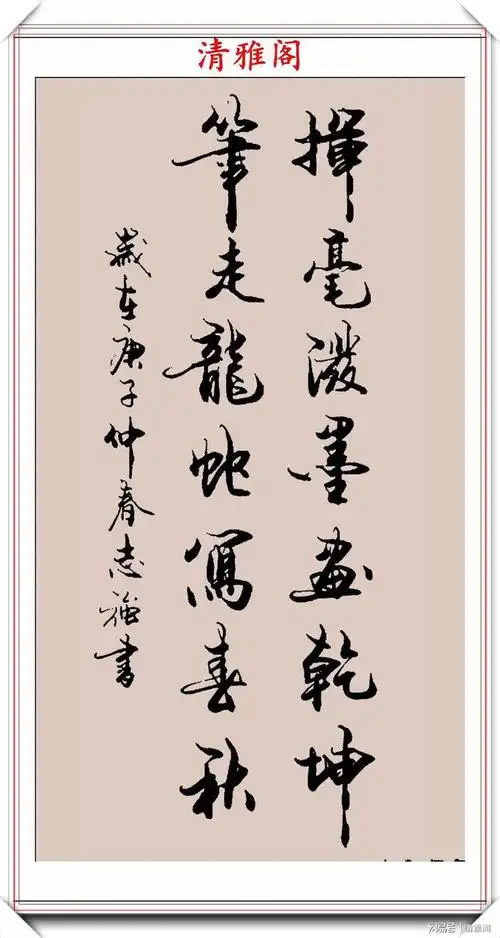 清雅阁
揮毫潑墨畫乾坤
筆走龍蛇寫春秋
歲在庚子仲春志強書
网易号 | 清雅阁